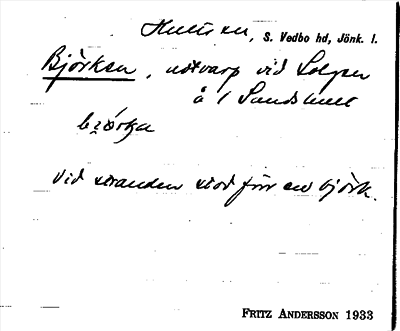 Hults sn, S. Vedbo hd, Jönk. l.
Björken, notvarp vid Solgen
å / Sandshult
vid stranden stod förr en björk.
FRITZ ANDERSSON 1933